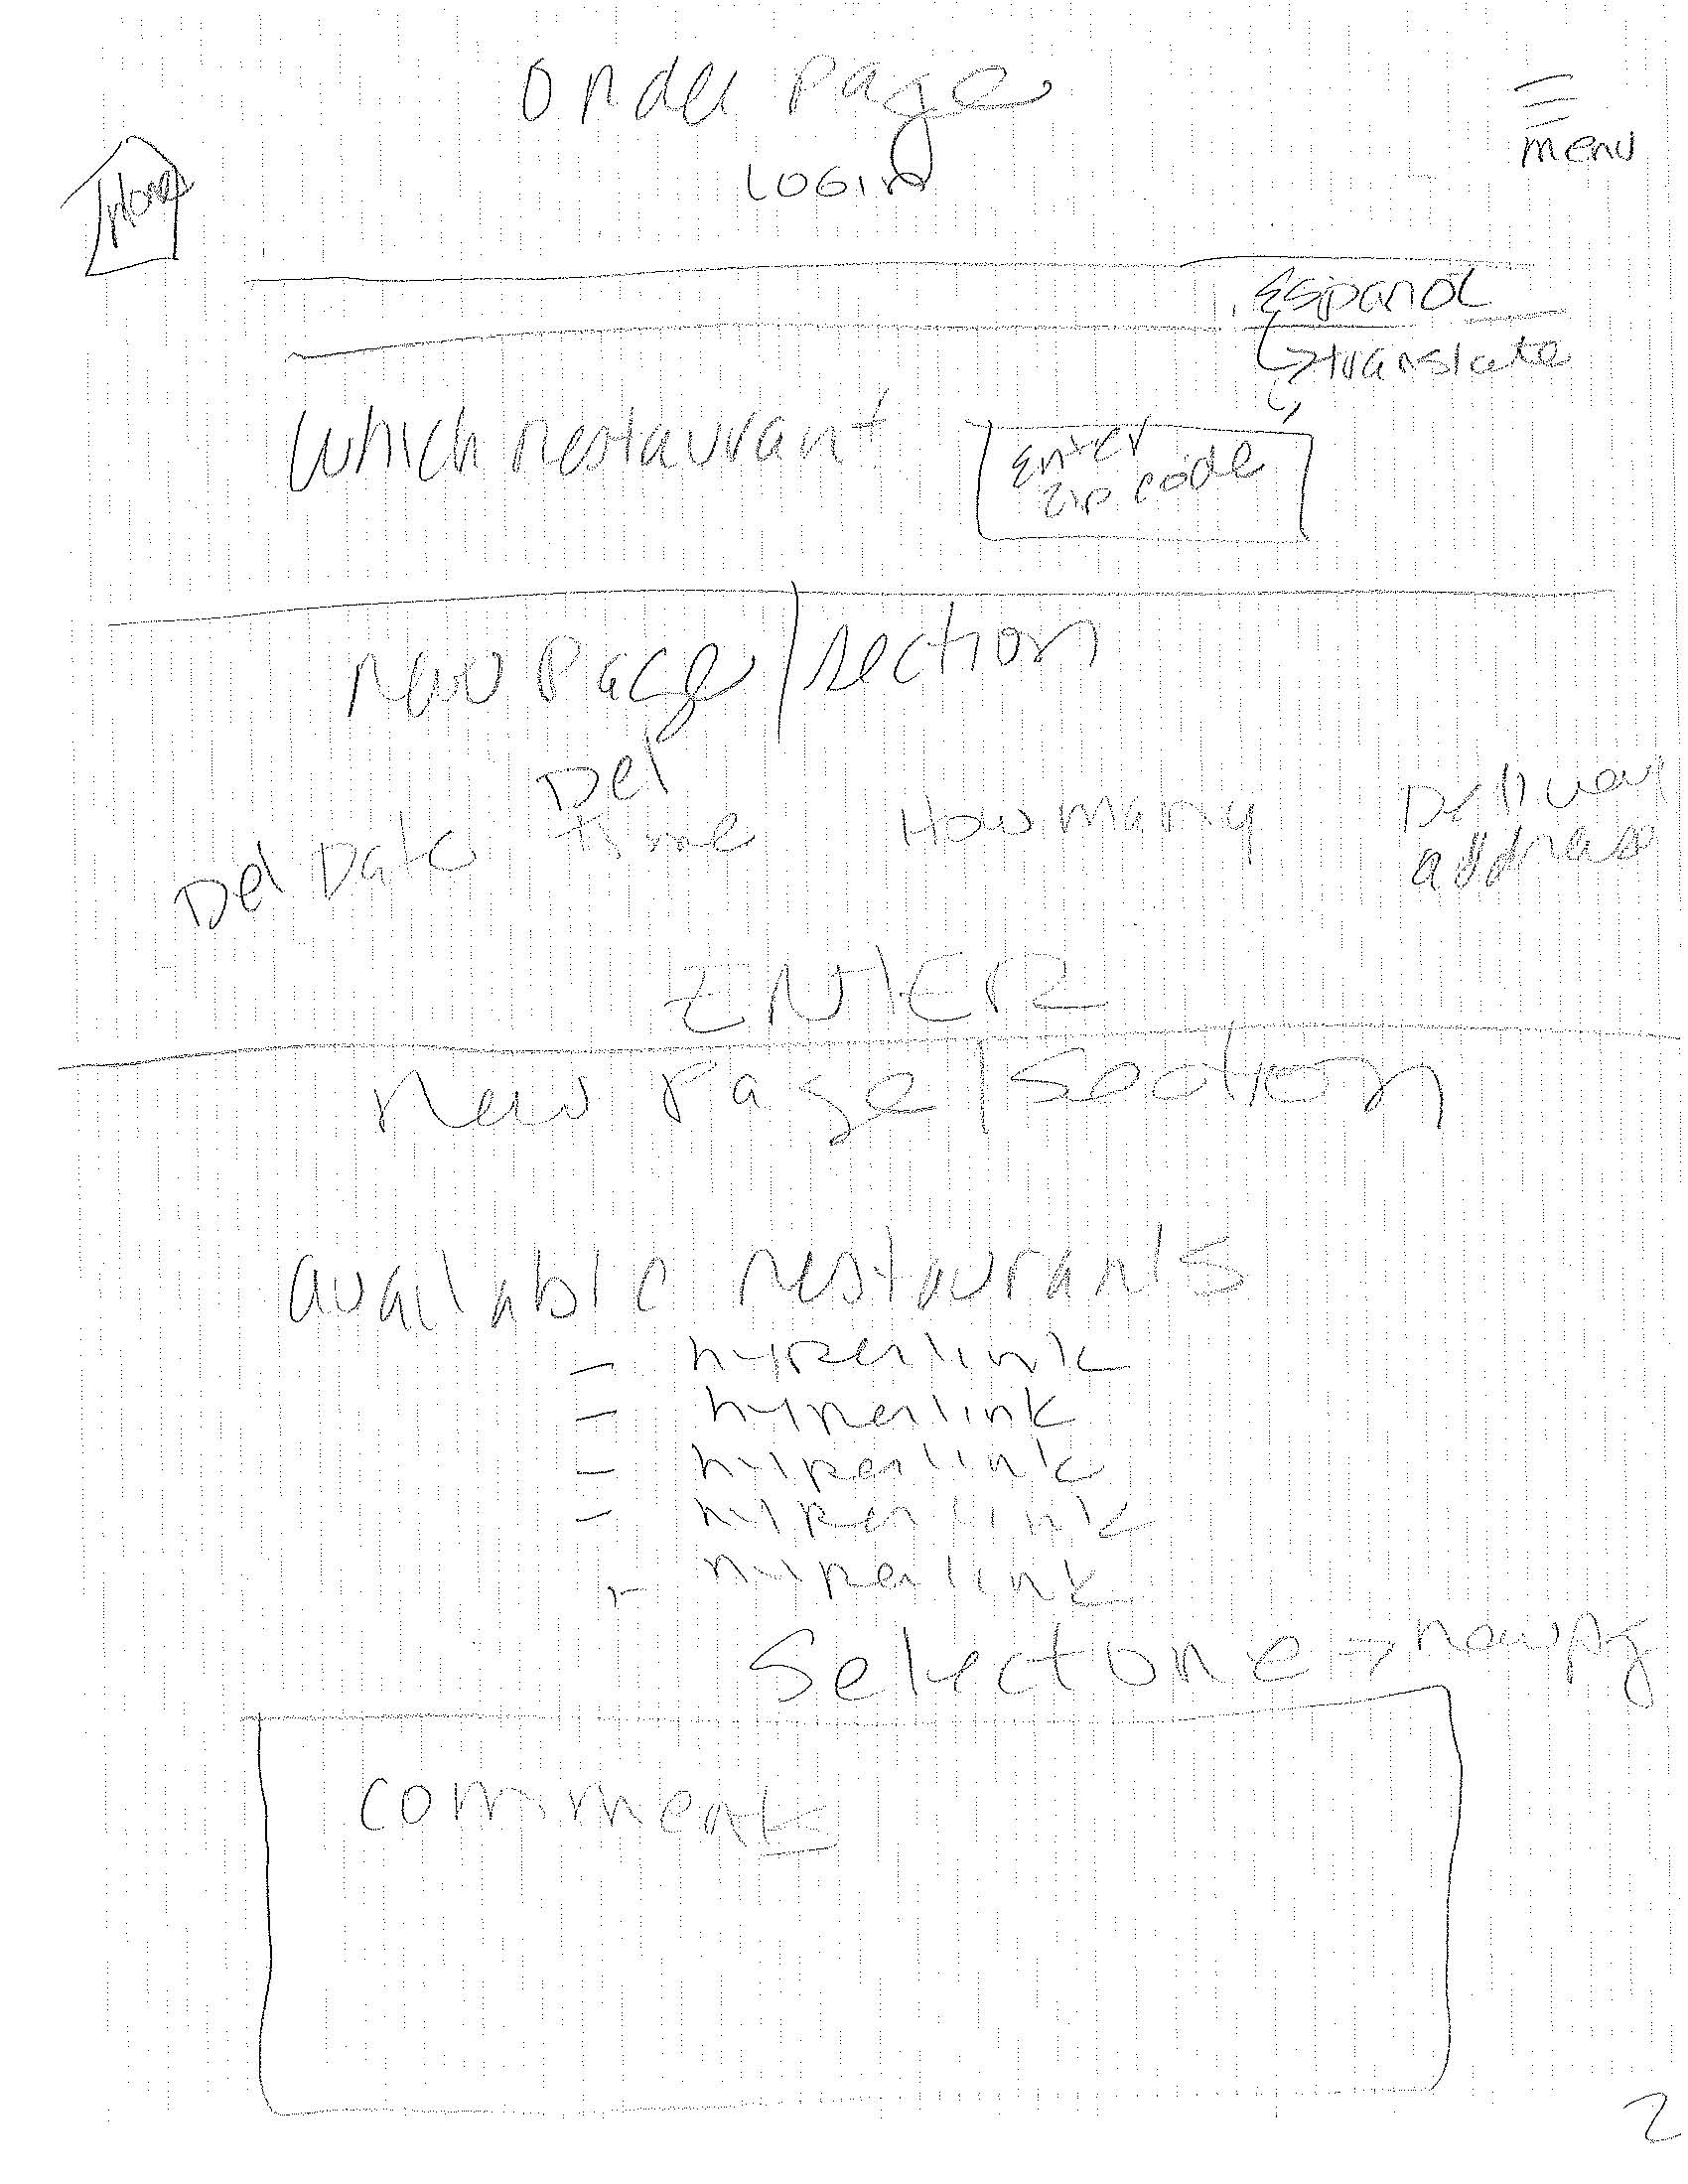 Order Page
menu
Home
LOGIN
Espanol
translate
Which restaurant
Enter
zip code
New Page/section
Del Date
Del
time
How many
Delivery
address
ENTER
New Page/Section
available restaurants
- hyperlink
- hyperlink
- hyperlink
- hyperlink
- hyperlink
Select one → new pg
comments
2